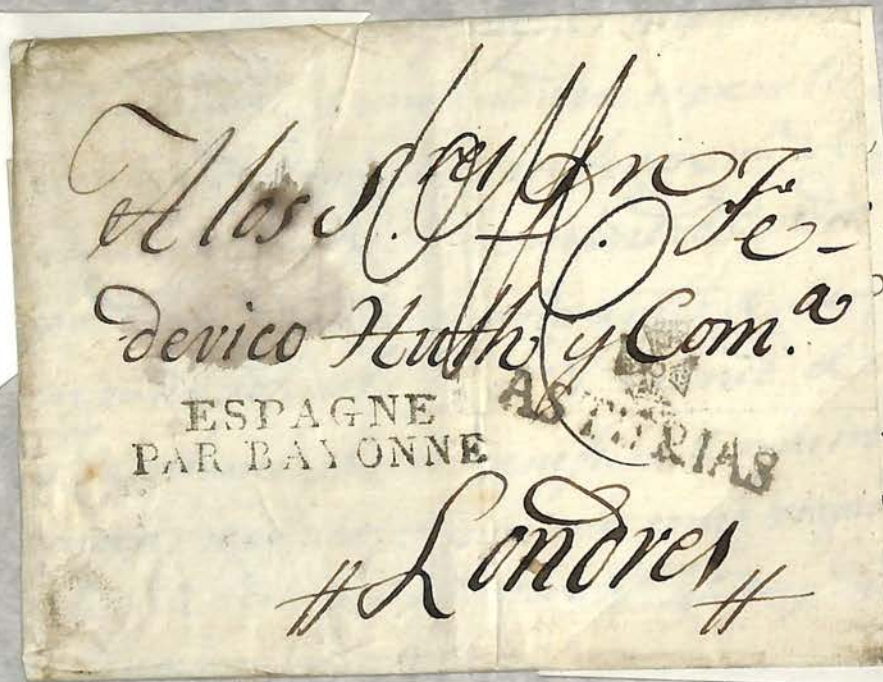 A los S.res Dn Fe-
derico Huth y Com.a
ESPAGNE
PAR BAYONNE
ASTURIAS
Londres